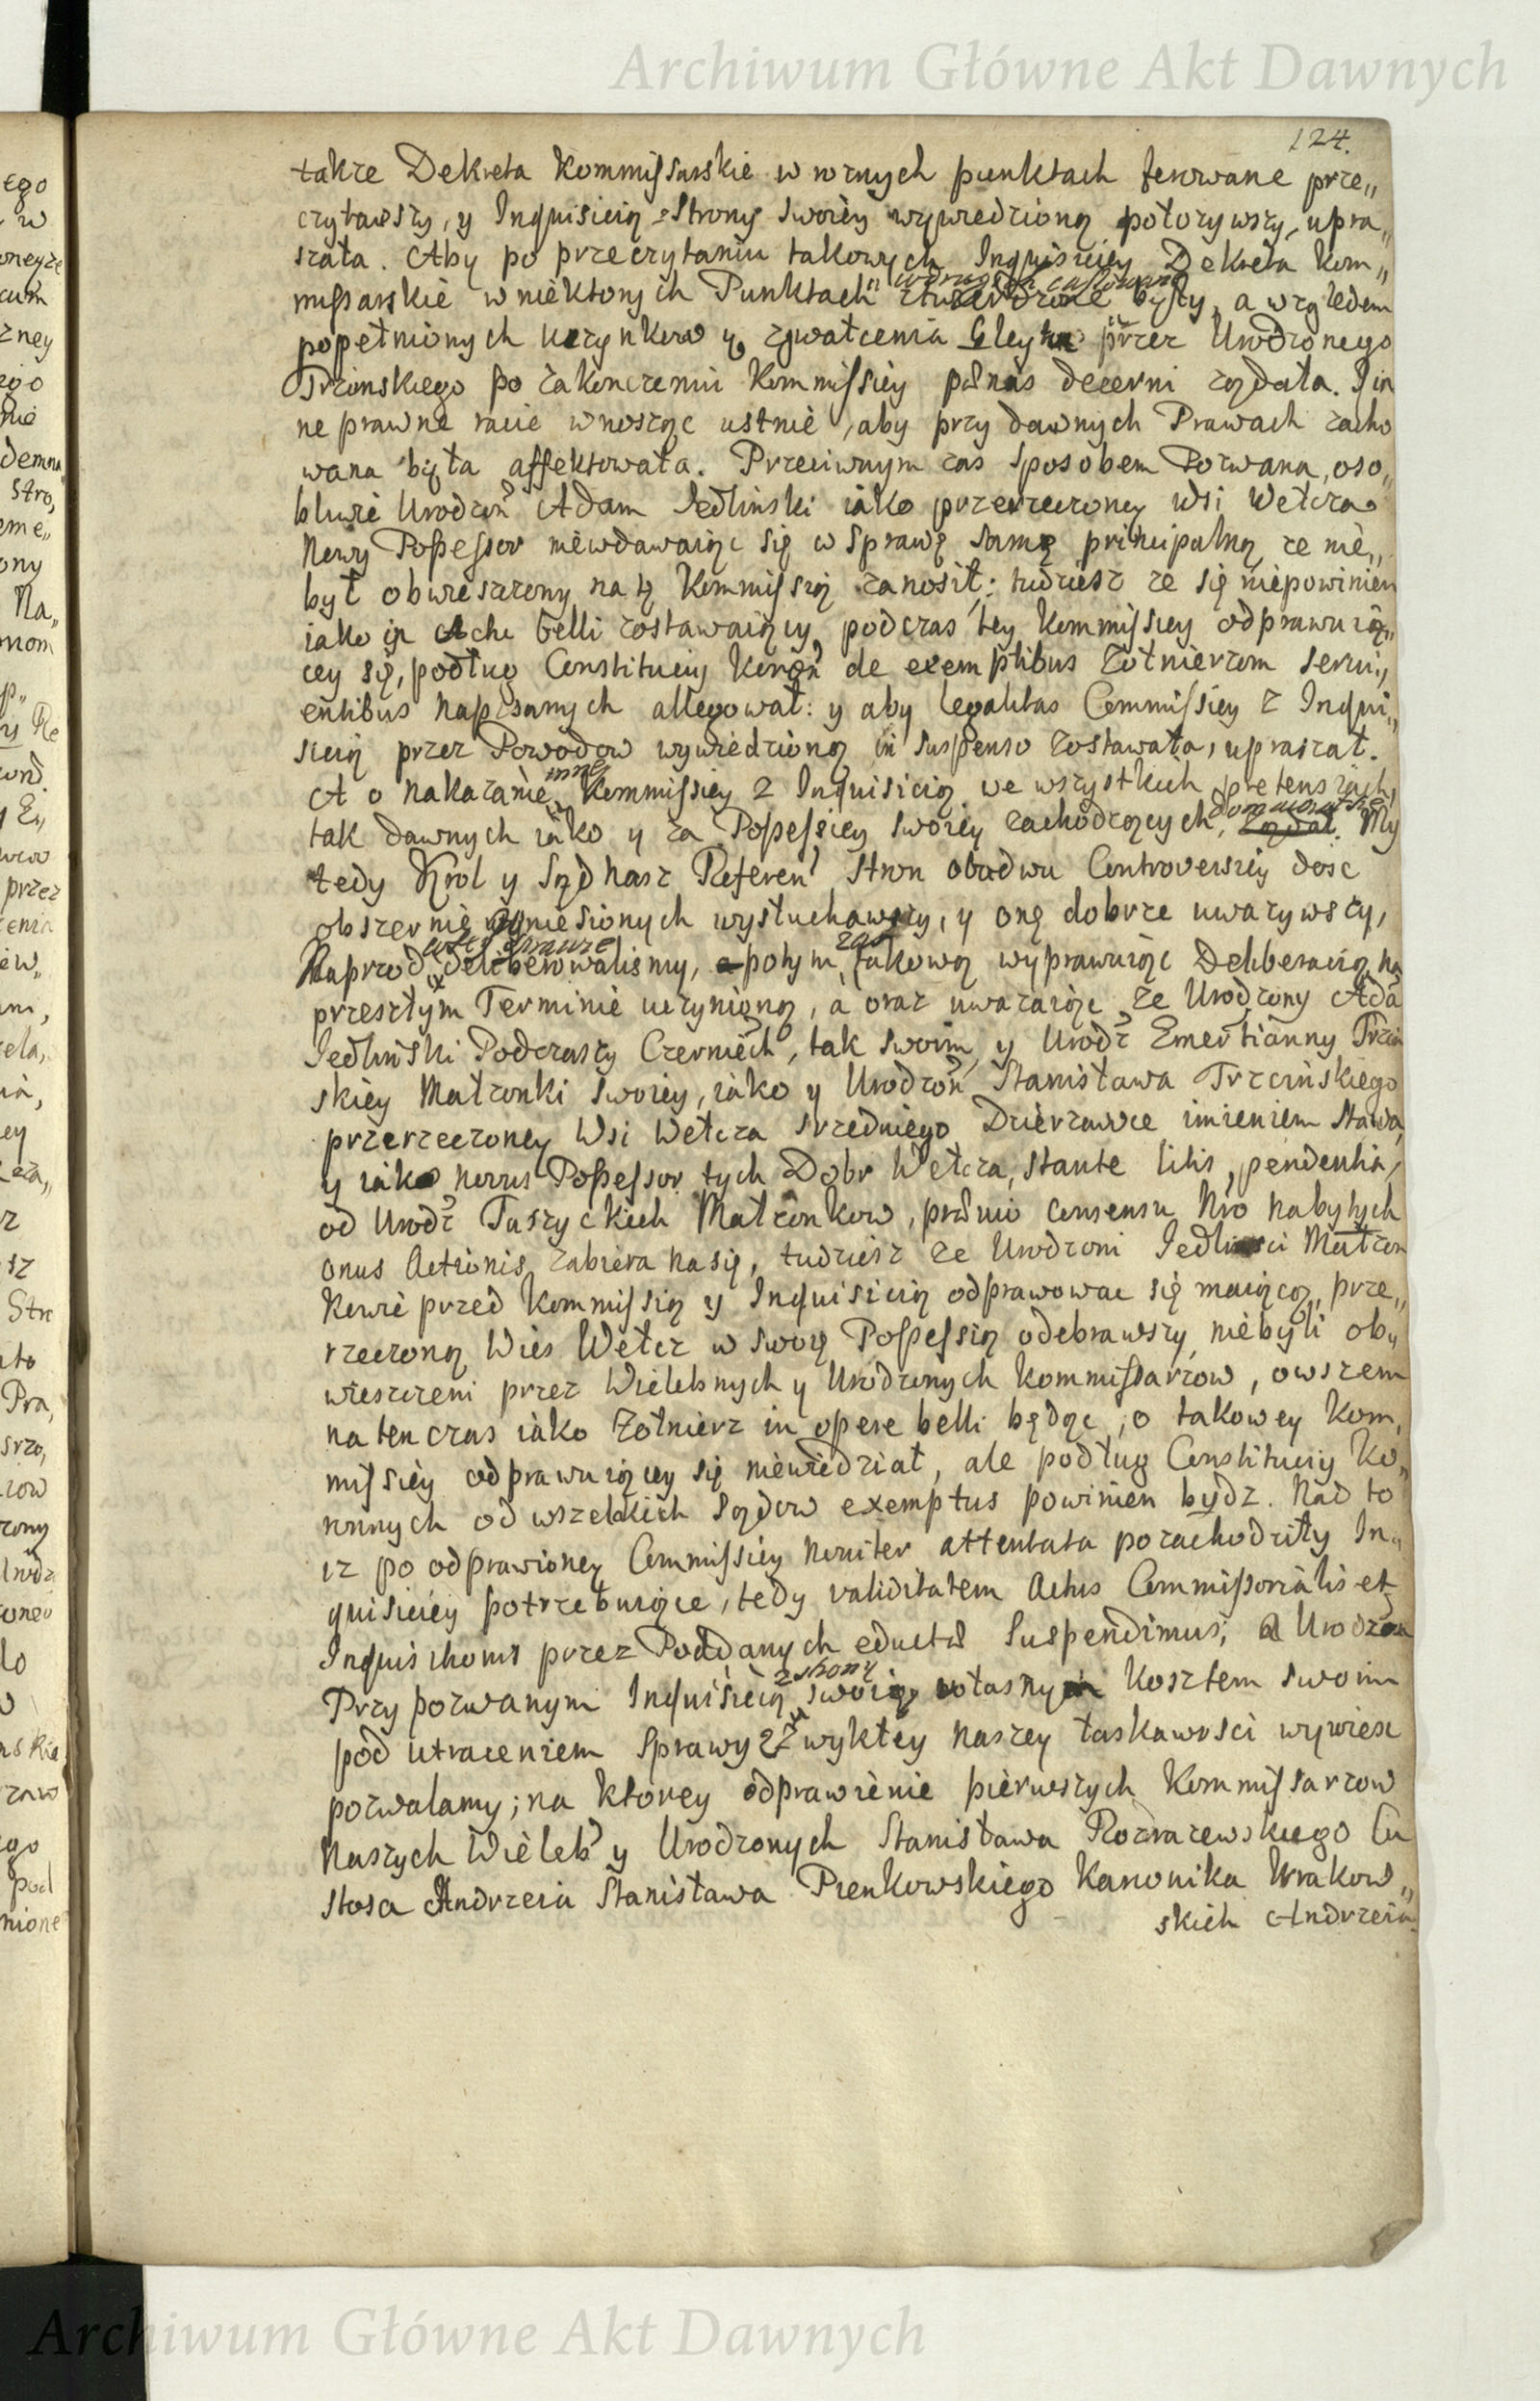 Archiwum Główne Akt Dawnych
124.
takze Dekreta Kommissarskie w roznych punktach ferowane prze„
czytawszy, y Inquisicią z Strony Swoiey wywiedzioną położywszy, upra„
szała. Aby po przeczytaniu takowych Inquisiciey Dekreta Kom„
missarskie w niektorych Punktach były, a względem
popełnionych uczynkow y zgwałcenia Gleytu przez Urodzonego
Trzinskiego po zakonczeniu Kommissiey decerni ządała. Y in
ne prawne racie wnosząc ustnie, aby przy dawnych Prawach zacho
wana była affektowała. Przeciwnym zas Sposobem Pozwana, oso„
bliwie Urodzon Adam Jedlinski iako przerzeczoney Wsi Wełcza
Nowy Possessor niewdawaiąc się w Sprawę samę principalną, ze nie„
był obwieszczony na tę Kommissią zanosił: tudziesz ze się niepowinien
iako in Actu belli zostawaiący podczas tey Kommissiey odprawuią„
cey się, podług Constituciy Koron de exemptibus Zołnierzom servi„
entibus napisanych allegował: y aby legalitas Commissiey z Inqui„
sicią przez Powodow wywiedzioną in suspenso zostawała, upraszał.
A o nakazanie inney Kommissiey z Inquisicią we wszystkich pretensiach,
tak dawnych iako y za Possessiey swoiey zachodzących, domawiał się. My
tedy Krol y Sąd nasz Referen Stron obudwu Controversiey dosc
obszernie wniesionych wysłuchawszy, y onę dobrze uwazywszy,
Naprzod w tey sprawie deliberowalismy, potym zas takową wyprawuiąc Deliberacią na
przeszłym Terminie uczynioną, a oraz uwazaiąc ze Urodzony Ada
Jedlinski Podczaszy Czerniech, tak swoim y Urodz Emertianny Trzin
skiey Małzonki swoiey, iako y Urodzon Stanisława Trzcinskiego
przerzeczoney Wsi Wełcza srzedniego Dzierzawce imieniem stawa,
y iako novus Possessor tych Dobr Wełcza, stante litis pendentia,
od Urodz Taszyckich Małzonkow, consensu Nro nabytych
onus Actionis zabiera na się, tudziesz ze Urodzoni Małzon
kowie przed Kommissią y Inquisicią odprawowac się maiącą, prze„
rzeczoną Wies Wełcz w swoię Possessią odebrawszy, niebyli ob„
wieszczeni przez Wielebnych y Urodzonych Kommissarzow, owszem
na ten czas iako Zołnierz in opere belli będąc, o takowey Kom„
missiey odprawuiącey się niewiedział, ale podług Constituciy Ko„
ronnych od wszelakich Sądow exemptus powinien bydz. Nad to
iz po odprawioney Commissiey noviter attentata pozachodziły In„
quisiciey potrzebuiące, tedy validitatem Actus Commissorialis et
Inquisitionis przez Poddanych Suspendimus; a
Przypozwanym Inquisicią z strony swoiey własnym Kosztem swoim
pod utraceniem Sprawy z Zwykłey naszey łaskawosci wywiesc
pozwalamy; na ktorey odprawienie pierwszych Kommissarzow
Naszych Wieleb y Urodzonych Stanisława Rozrazewskiego Cu
stosa Andrzeia Stanisława Pienkowskiego Kanonika Krakow„
skich Andrzeia
Archiwum Główne Akt Dawnych